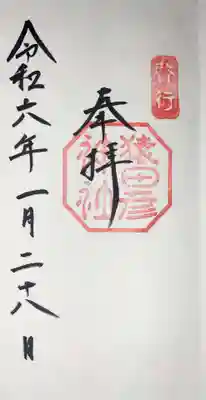 奉拝
猿田彦
神社
令和六年一月二十八日